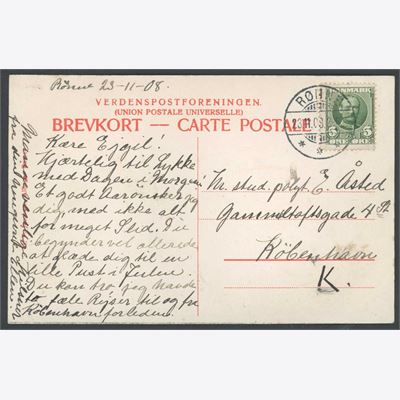 Rønne 23-11-08.
VERDENSPOSTFORENINGEN.
(UNION POSTALE UNIVERSELLE)
BREVKORT — CARTE POSTALE
RØNNE
23.11.08
DANMARK
5 5
ØRE ØRE
Kære Ejgil!
Hjærtelig til Lykke
med Dagen i Morgen!
Et godt Aar ønsker jeg
dig, med ikke alt
for meget Slid. Du
begynder vel allerede
at glæde dig til en
lille Pust i Julen.
Du kan tro jeg havde
to fæle Rejser til og fra
København forleden.
Mange venlige Hilsner
fra din hengivne Ellen.
Hr. stud. polyt. E. Åsted
Gammeltoftsgade 4
København
K.